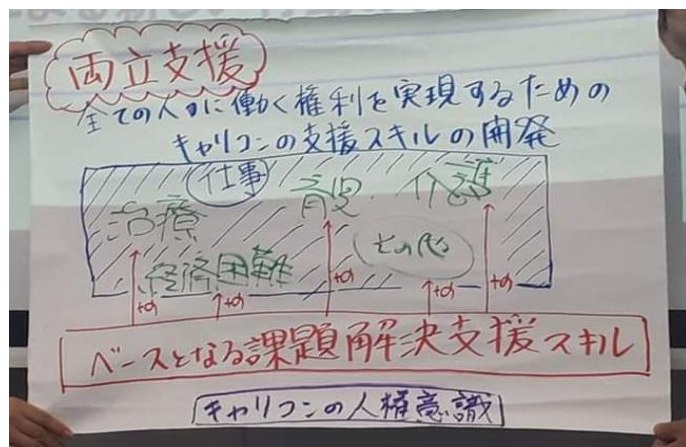 両立支援
全ての人々に働く権利を実現するための
キャリコンの支援スキルの開発
仕事
治療 育児・介護
経済困難 その他
+α +α +α +α +α
ベースとなる課題解決支援スキル
キャリコンの人権意識